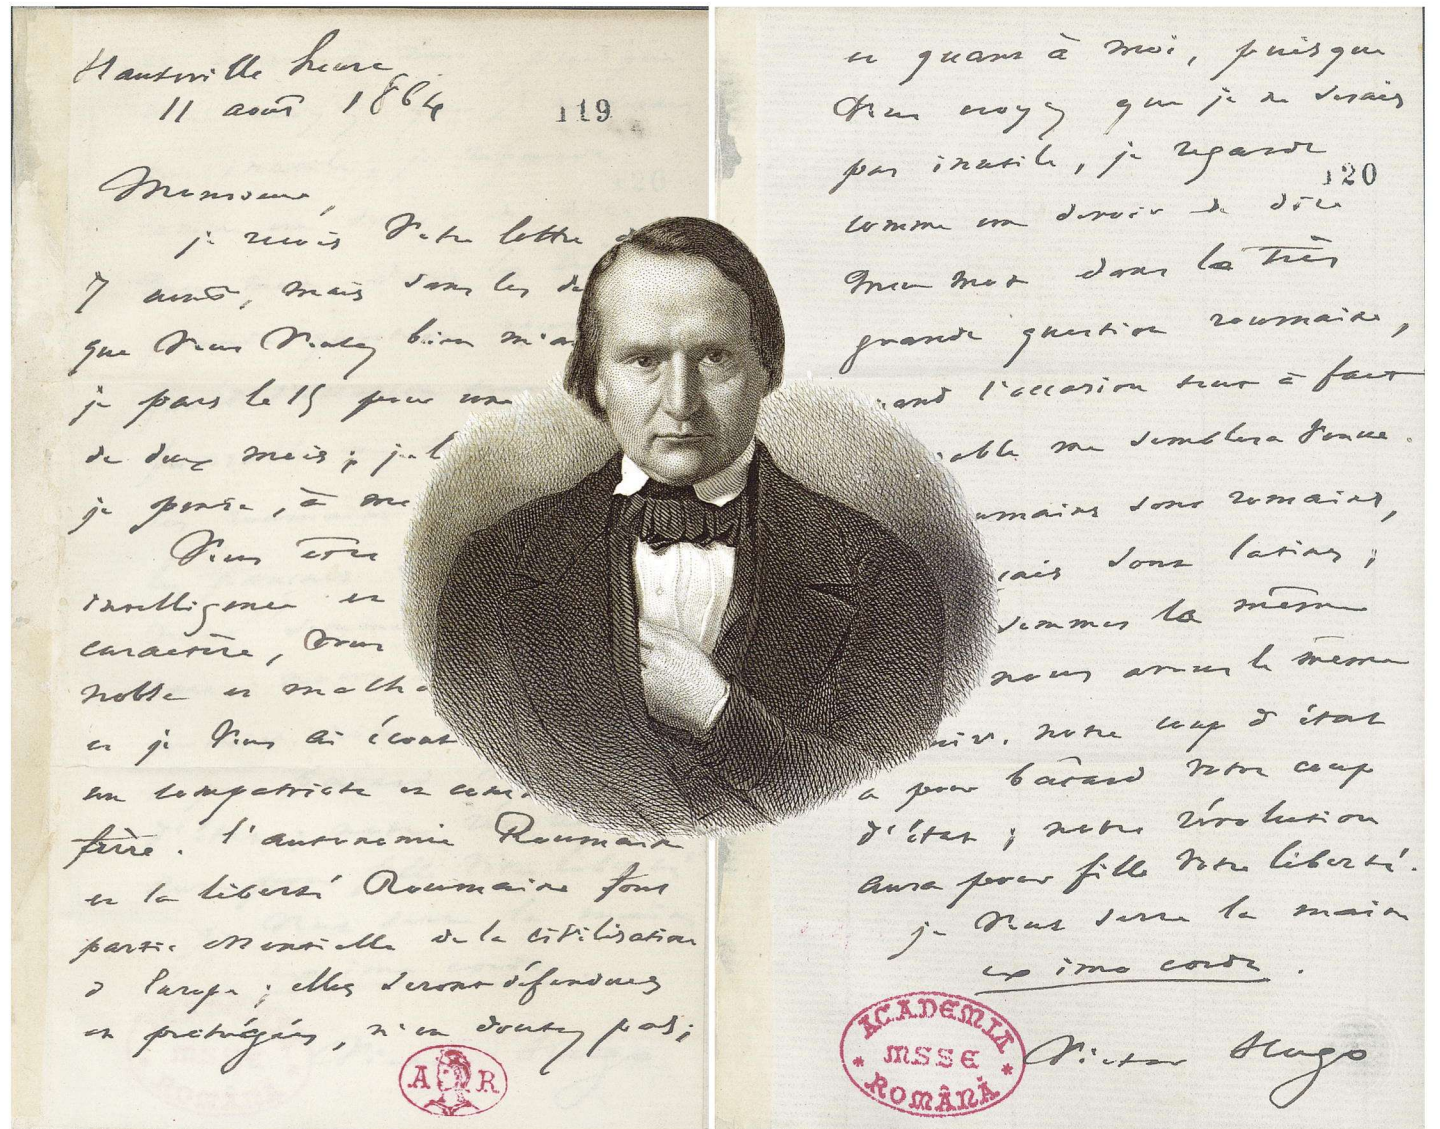 Hauteville house
11 août 1864
119
Monsieur,
je reçois Votre lettre d
7 août, mais dans les de
que Vous Voulez bien m'a
je pars le 15 pour une
de deux mois ; je l
je pense, à me
Vous êtes
intelligence et
caractère, Vous
noble et malh
et je Vous ai écout
un compatriote et com
frère. l'autonomie Roumaine
et la liberté Roumaine font
partie essentielle de la civilisation
d'Europe ; elles seront défendues
et protégées, n'en doutez pas ;
A R
et quant à moi, puisque
Vous croyez que je ne serais
pas inutile, je regarde
120
comme un devoir de dire
mon mot dans la très
grande question roumaine,
uand l'occasion tout à fait
able me semblera Venue.
umains sont romains,
çais sont latins ;
sommes la même
nous avons le même
notre coup d'état
a pour bâtard Votre coup
d'état ; notre révolution
aura pour fille Votre liberté.
je Vous serre la main
ex imo corde.
Victor Hugo
ACADEMIA
MSSE
ROMÂNĂ